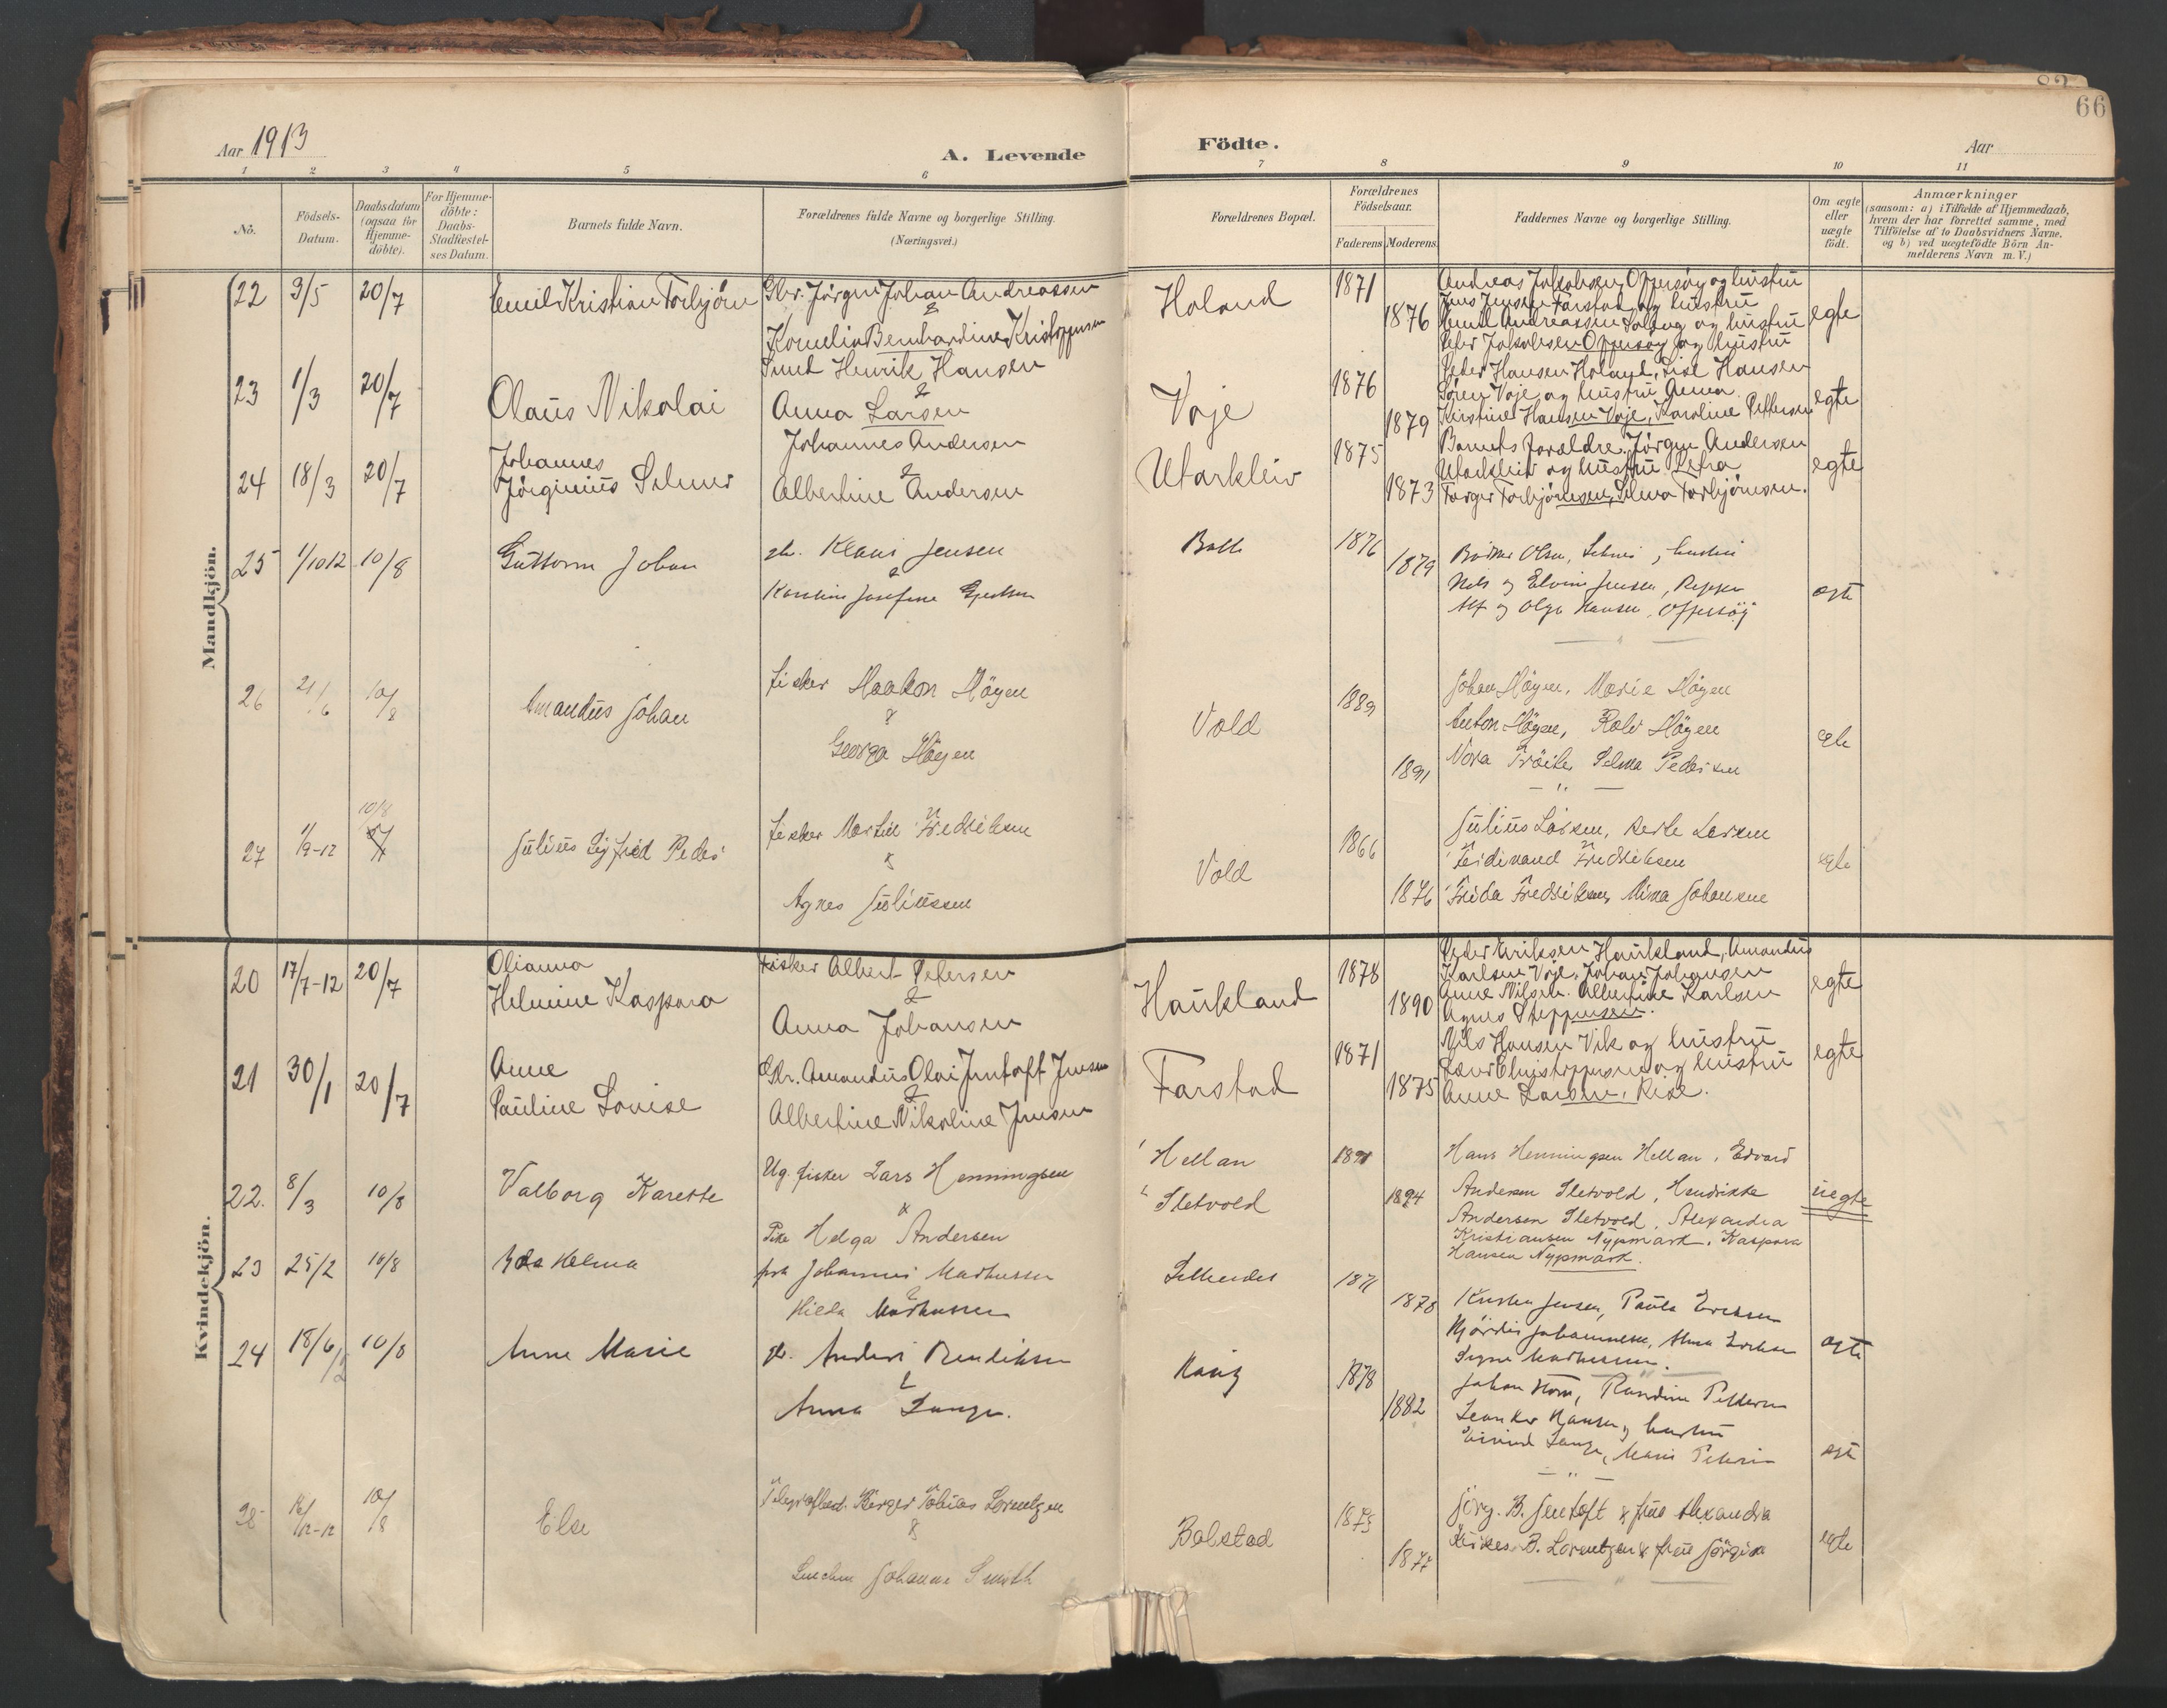 66
Aar 1913
A. Levende
Födte.
Aar
1 2 3 4 5 6 7 8 9 10 11
No.
Födsels-
Datum.
Daabsdatum
(ogsaa for
Hjemme-
döbte).
For Hjemme-
döbte:
Daabs-
Stadfæstel-
ses Datum.
Barnets fulde Navn.
Forældrenes fulde Navne og borgerlige Stilling.
(Næringsvei.)
Forældrenes Bopæl.
Forældrenes
Födselsaar.
Faderens Moderens
Faddernes Navne og borgerlige Stilling.
Om ægte
eller
uægte
födt.
Anmærkninger
(saasom: a) i Tilfælde af Hjemmedaab,
hvem der har forrettet samme, med
Tilföielse af to Daabsvidners Navne.
og b) ved uægtefödte Börn An-
melderens Navn m. V.)
Mandkjön.
22 3/5 20/7 Emil Kristian Torbjörn
Gbr. Jörgen Johan Andreassen
&
Kornelia Bernhardine Kristoffersen
Holand 1871 1876
Andreas Jakobsen Offersöy og hustru
Jens Jensen Farstad og hustru
Andreassen og hustru
Peder Jakobsen Offersöy og hustru
egte
23 1/3 20/7 Olaus Nikolai
Smed Henrik Hansen
&
Anna Larsen
Voje 1876 1879
Peder Hansen Holand, Lise Hansen
Sören Voje og hustru Anna
Kirstine Hansen Voje, Karoline Pettersen
egte
24 18/3 20/7 Johannes
Jörginius Selmer
Johannes Andersen
&
Albertine Andersen
Utakleiv 1875 1873
Barnets forældre. Jörgen Andersen
Utakleiv og hustru Petra
Torger Torbjörnsen, Selma Torbjörnsen.
egte
25 1/10 12 10/8 Guttorm Johan
gbr. Klaus Jensen
&
Karoline Josefine
Bolle 1876 1879
Olsen, hustru
Nils og Elvine Jensen, Reppen
Alf og Olga Hansen, Offersöy
egte
26 21/6 10/8 Amandus Johan
fisker Haakon Högen
&
Georga Högen
Vold 1889 1891
Johan Högen, Marie Högen
Anton Högen, Rolv Högen
Nora Selma Pedersen
— " —
egte
27 1/9-12 10/8 Julius Sigfred Peder
fisker Martin Fredriksen
&
Agnes Juliussen
Vold 1866 1876
Julius Larsen, Larsen
Ferdinand Fredriksen
Frida Fredriksen, Mina Johansen
egte
Kvindekjön.
20 17/7-12 20/7 Olianna
Helmine Kaspara
Fisker Albert Petersen
&
Anna Johansen
Haukland 1878 1890
Peder Eriksen Haukland, Amandus
Karlsen Voje, Johan Johansen
Anne Nilsen. Albertine Karlsen
Agnes Steffensen.
egte
21 30/1 20/7 Anne
Pauline Louise
Gbr. Amandus Olai Jentoft Jensen
&
Albertine Nikoline Jensen
Farstad 1871 1875
Nils Hansen Vik og hustru
Christoffersen og hustru
Anne Larsen, Rise.
egte
22. 8/3 10/8 Valborg Karette
Ug. fisker Lars Henningsen
&
Pike Helga Andersen
Hellan
Sletvold
1891 1894
Hans Henningsen Hellan, Edvard
Andersen Sletvold, Hendrikke
Andersen Sletvold, Alexandra
Kristiansen Nypmark, Kaspara
Hansen Nypmark.
uegte
23 25/2 10/8 Helma
Johannes Markussen
&
Hilda Markussen
1871 1878
Jensen, Paula Eriksen
Hjördis Johannesen, Alma
Signe Markussen.
egte
24 18/6/12 10/8 Anne Marie
gb. Anders Bendiksen
&
Anna Lange.
Haug 1878 1882
Johan Storm, Randine Pettersen
Leander Hansen og hustru
Eivind Lange, Marie
— " —
egte
25 16/12-12 10/8 Else
Birger Tobias Lorentzen
&
Johanne Smith
Bolstad 187
Jörg. B. Jentoft & frue Alexandra
B. Lorentzen & frue
egte